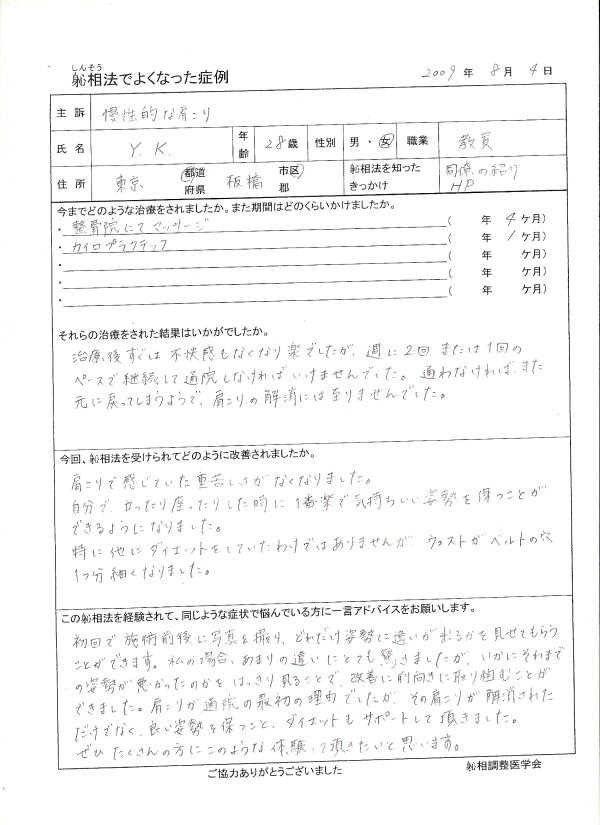 しんそう
躱相法でよくなった症例 2009年 8月 4日
主訴 慢性的な肩こり
氏名 Y.K. 年齢 28歳 性別 男・女 職業 教員
住所 東京 都道府県 板橋 市区郡 躱相法を知ったきっかけ 同僚の紹介 HP
今までどのような治療をされましたか。また期間はどのくらいかけましたか。
・整骨院にてマッサージ ( 年 4ケ月)
・カイロプラクテック ( 年 1ケ月)
・ ( 年 ケ月)
・ ( 年 ケ月)
・ ( 年 ケ月)
それらの治療をされた結果はいかがでしたか。
治療後すぐは不快感もなくなり楽でしたが、週に2回、または1回の
ペースで継続して通院しなければいけませんでした。通わなければ、また
元に戻ってしまうようで、肩こりの解消には至りませんでした。
今回、躱相法を受けられてどのように改善されましたか。
肩こりで感じていた重苦しさがなくなりました。
自分で、立ったり座ったりした時に1番楽で気持ちいい姿勢を保つことが
できるようになりました。
特に他にダイエットをしていたわけではありませんが、ウェストがベルトの穴
1つ分細くなりました。
この躱相法を経験されて、同じような症状で悩んでいる方に一言アドバイスをお願いします。
初回で施術前後に写真を撮り、どれだけ姿勢に違いが出るかを見せてもらう
ことができます。私の場合、あまりの違いにとても驚きましたが、いかにそれまで
の姿勢が悪かったのかをはっきり見ることで、改善に前向きに取り組むことが
できました。肩こりが通院の最初の理由でしたが、その肩こりが解消された
だけでなく、良い姿勢を保つこと、ダイエットもサポートして頂きました。
ぜひたくさんの方にこのような体験して頂きたいと思います。
ご協力ありがとうございました 躱相調整医学会